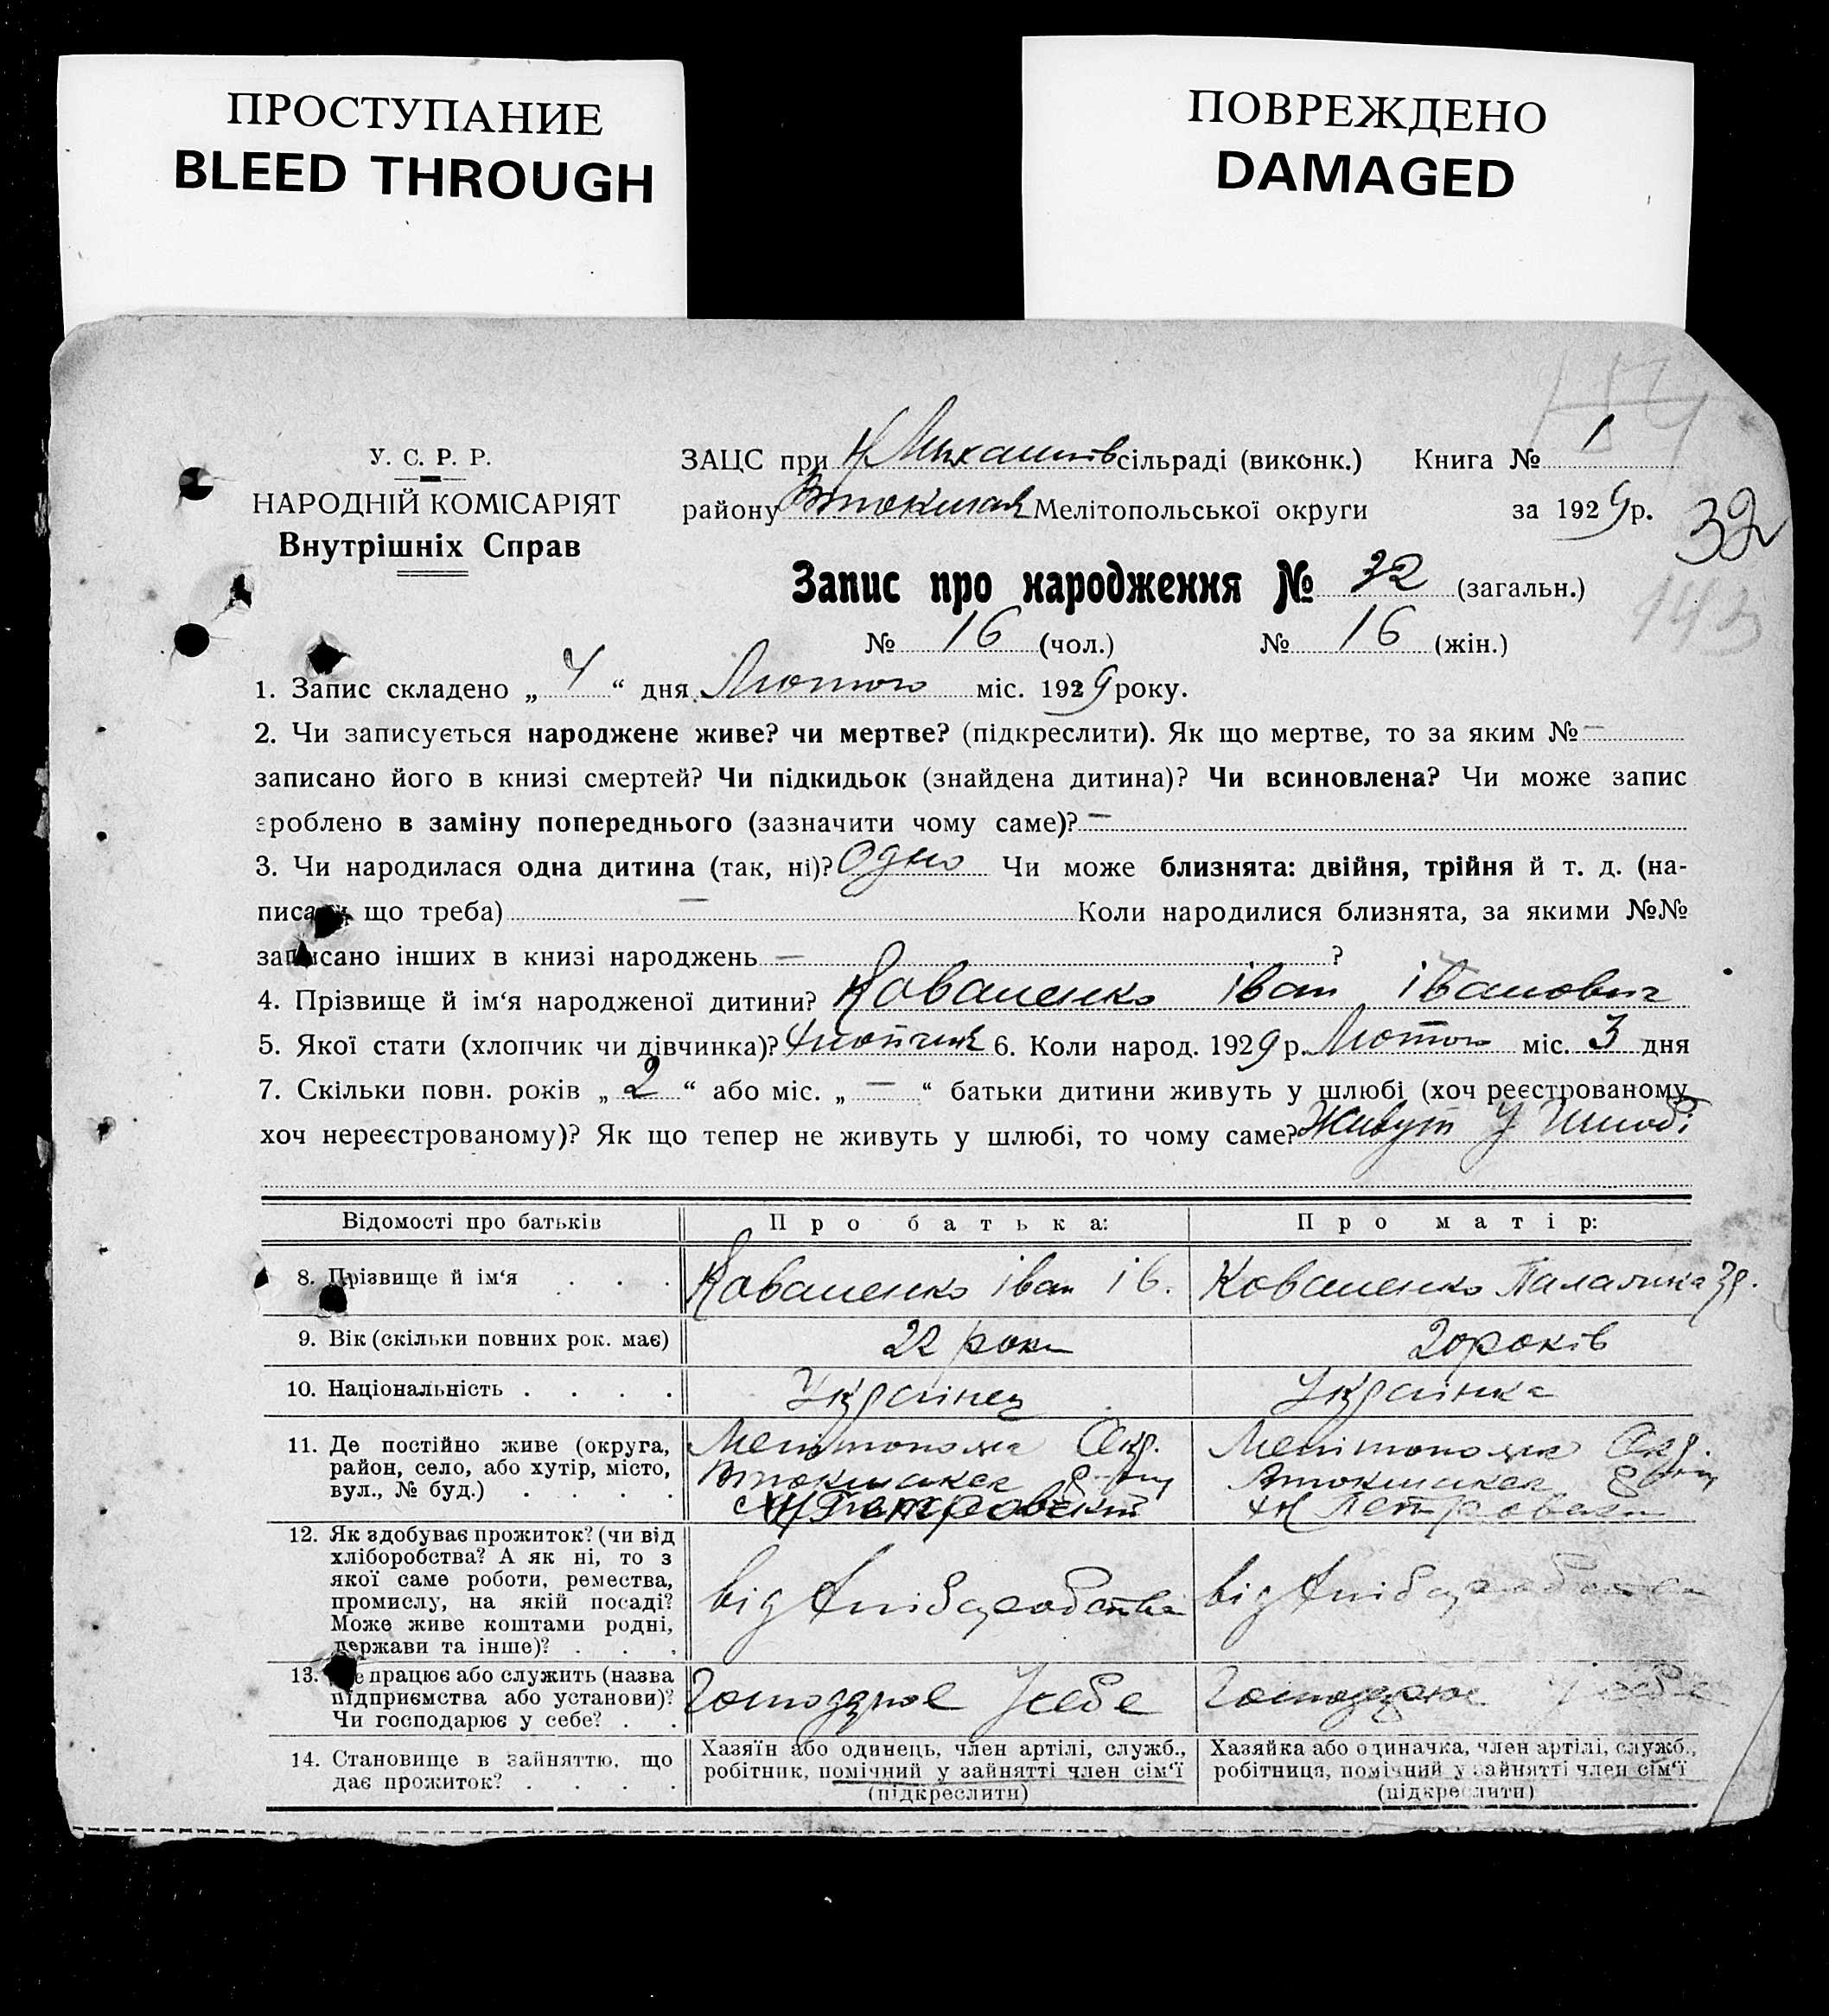 ПРОСТУПАНИЕ
BLEED THROUGH
ПОВРЕЖДЕНО
DAMAGED
У. С. Р. Р.
НАРОДНІЙ КОМІСАРІЯТ
Внутрішніх Справ
ЗАЦС при сільраді (виконк.) Книга № 1
району Мелітопольської округи за 1929 р.
32
Запис про народження № 32 (загальн.)
143
№ 16 (чол.) № 16 (жін.)
1. Запис складено „ 4 “ дня Лютого міс. 1929 року.
2. Чи записується народжене живе? чи мертве? (підкреслити). Як що мертве, то за яким № —
записано його в книзі смертей? Чи підкидьок (знайдена дитина)? Чи всиновлена? Чи може запис
зроблено в заміну попереднього (зазначити чому саме)? —
3. Чи народилася одна дитина (так, ні)? Одно Чи може близнята: двійня, трійня й т. д. (на-
писати що треба) — Коли народилися близнята, за якими №№
записано інших в книзі народжень — ?
4. Прізвище й ім‘я народженої дитини? Коваленко Іван Іванович
5. Якої стати (хлопчик чи дівчинка)? Хлопчик 6. Коли народ. 1929 р. Лютого міс. 3 дня
7. Скільки повн. років „ 2 “ або міс. „ — “ батьки дитини живуть у шлюбі (хоч реєстрованому
хоч нереєстрованому)? Як що тепер не живуть у шлюбі, то чому саме? Живут У Шлюбі
Відомості про батьків Про батька: Про матір:
8. Прізвище й ім‘я . . . Коваленко Іван Ів. Коваленко
9. Вік (скільки повних рок. має) 22 роки 20 років
10. Національність . . . . Українец Українка
11. Де постійно живе (округа,
район, село, або хутір, місто,
вул., № буд.) . . . .
Окр. Окр.
12. Як здобуває прожиток? (чи від
хліборобства? А як ні, то з
якої саме роботи, ремества,
промислу, на якій посаді?
Може живе коштами родні,
держави та інше)? . . .
від хліборобства від хліборобства
13. Де працює або служить (назва
підприємства або установи)?
Чи господарює у себе? . .
Господарює У себе Господарює У себе
14. Становище в зайняттю, що
дає прожиток? . . . .
Хазяїн або одинець, член артілі, служб.,
робітник, помічний у зайнятті член сім‘ї
(підкреслити)
Хазяйка або одиначка, член артілі, служб.,
робітниця, помічний у зайнятті член сім‘ї
(підкреслити)